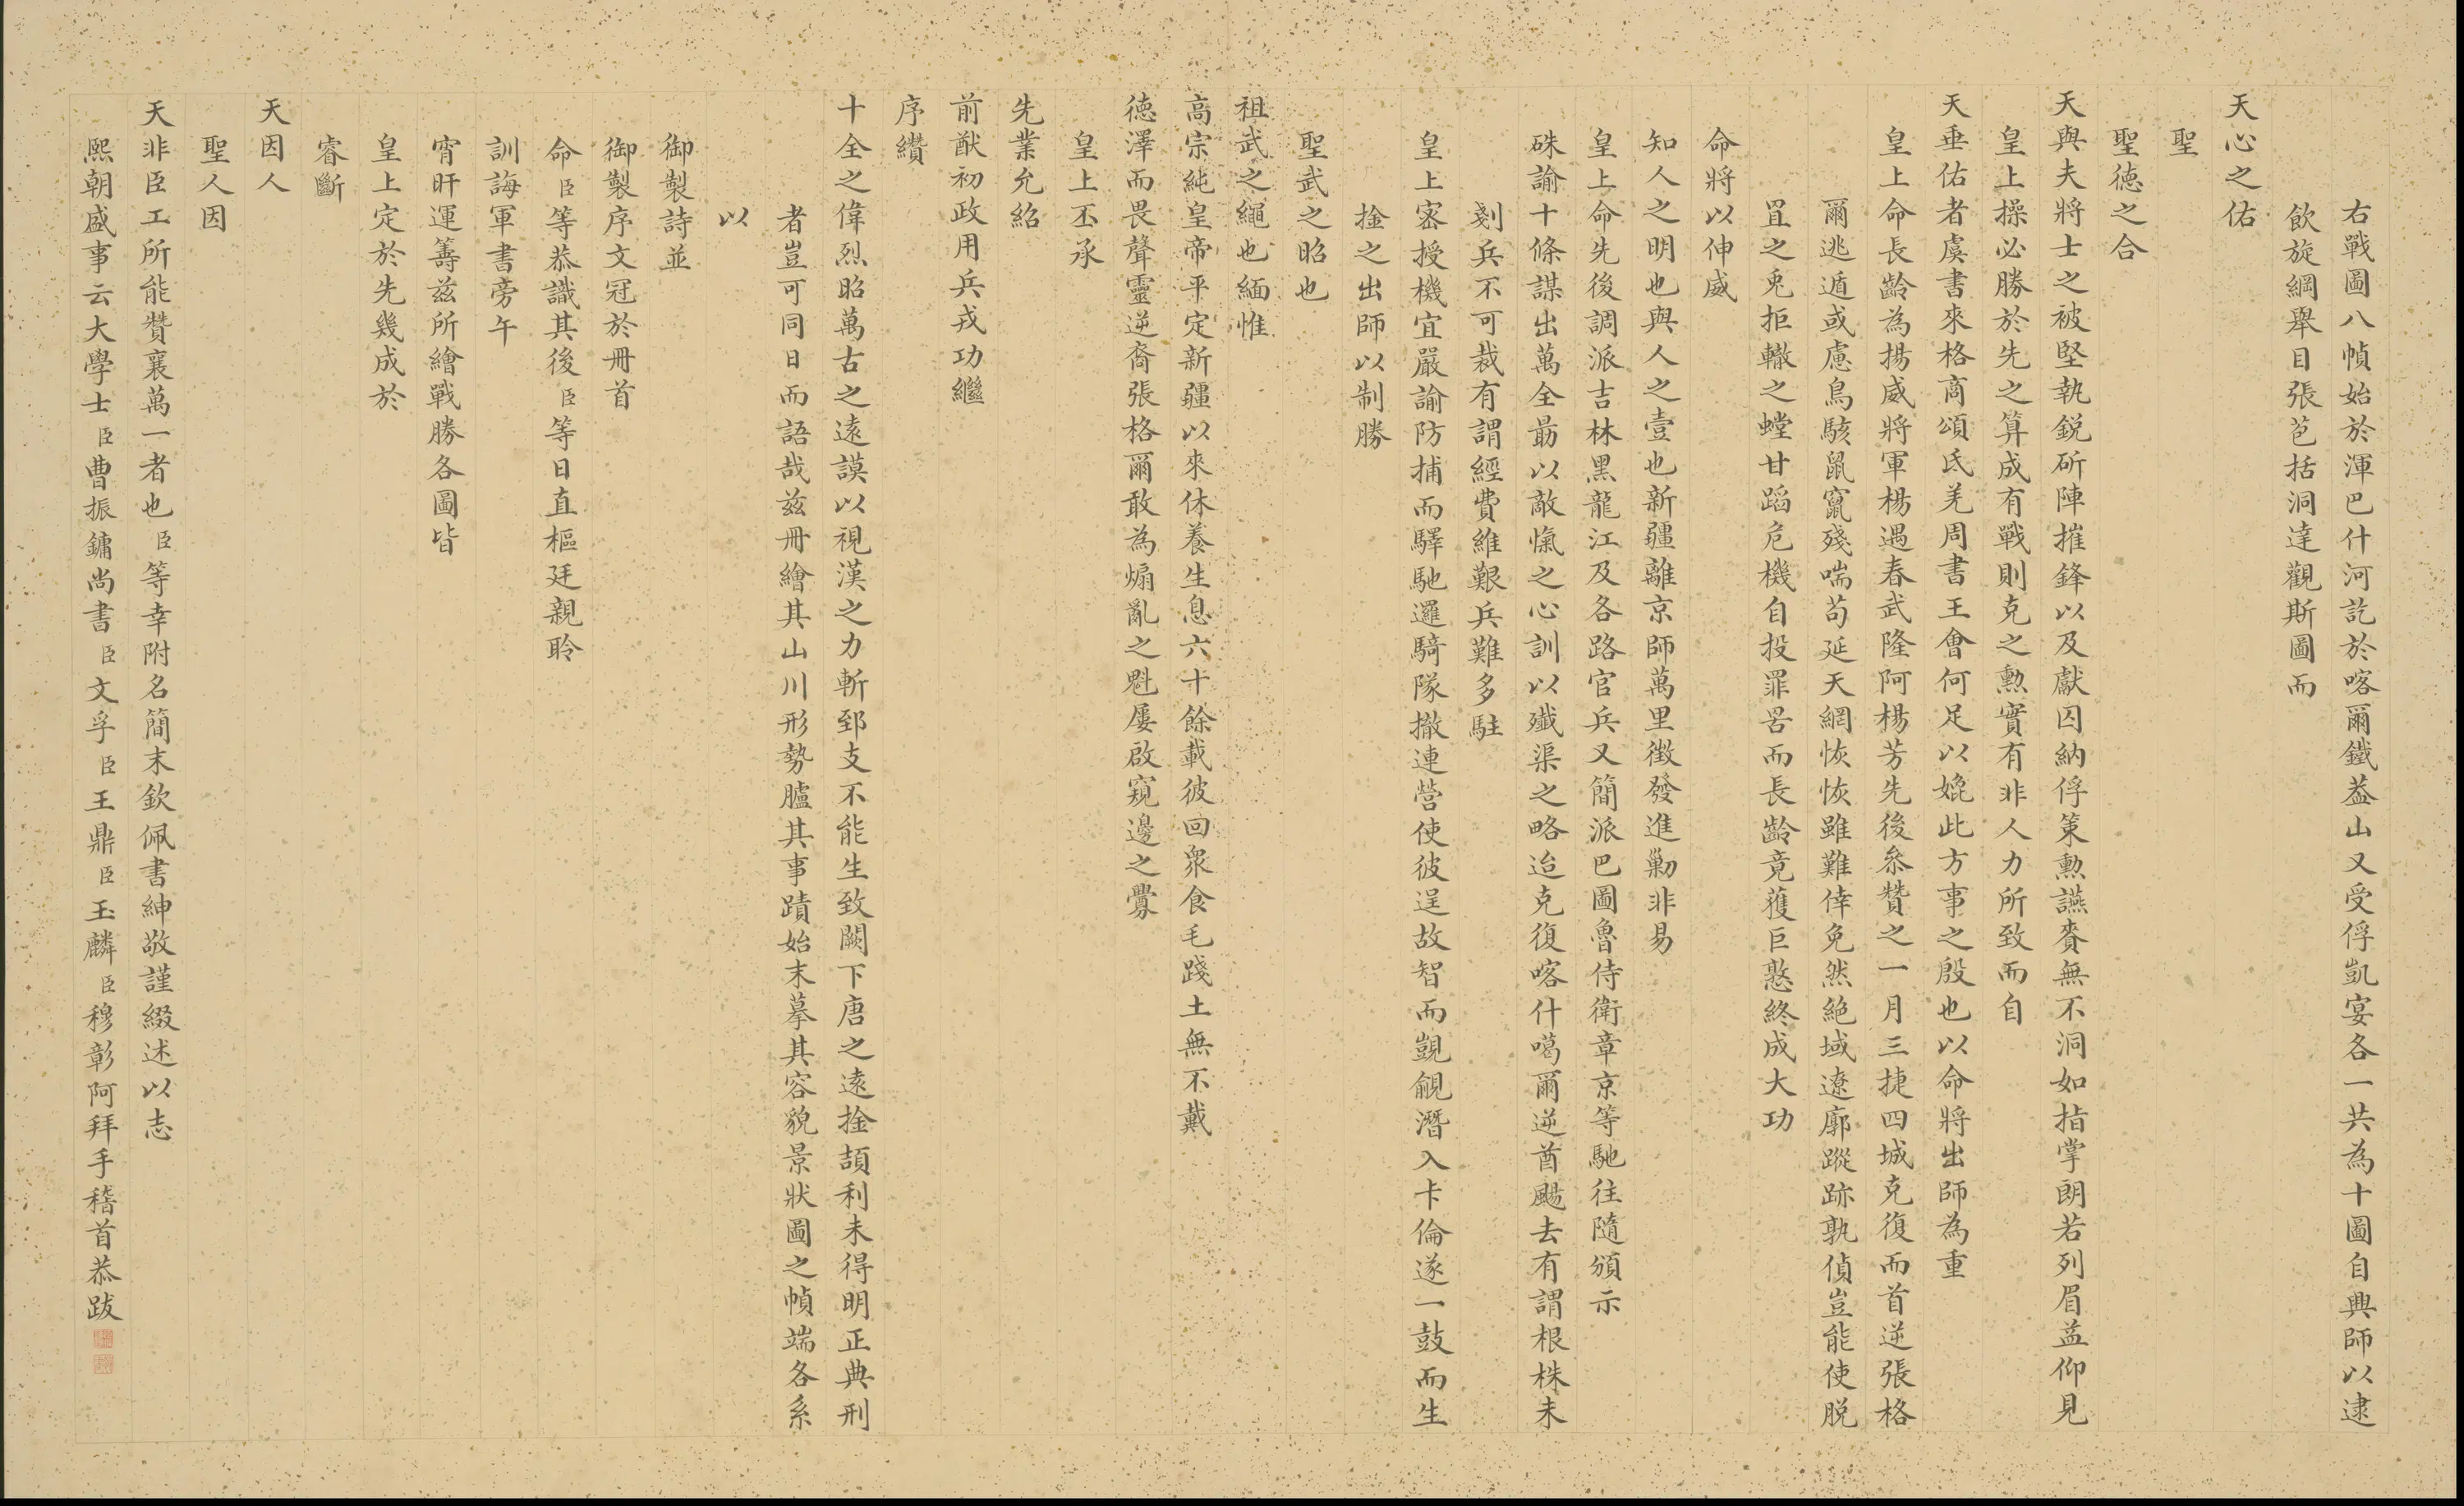 右戰圖八幀始於渾巴什河訖於喀爾鐵葢山又受俘凱宴各一共為十圖自興師以逮
飲旋綱舉目張苞括洞達觀斯圖而
天心之佑
聖
聖德之合
天與夫將士之被堅執銳斫陣摧鋒以及獻囚納俘策勲讌賚無不洞如指掌朗若列眉葢仰見
皇上操必勝於先之算成有戰則克之勲實有非人力所致而自
天垂佑者虞書來格商頌氐羌周書王會何足以媲此方事之殷也以命將出師為重
皇上命長齡為揚威將軍楊遇春武隆阿楊芳先後叅贊之一月三捷四城克復而首逆張格
爾逃遁或慮鳥駭鼠竄殘喘苟延天網恢恢雖難倖免然絕域遼廓蹤跡孰偵豈能使脫
罝之兎拒轍之螳甘蹈危機自投罪罟而長齡竟獲巨憝終成大功
命將以伸威
知人之明也與人之壹也新疆離京師萬里徵發進勦非易
皇上命先後調派吉林黑龍江及各路官兵又簡派巴圖魯侍衛章京等馳往隨頒示
硃諭十條謀出萬全最以敵愾之心訓以殲渠之略迨克復喀什噶爾逆酋颺去有謂根株未
剗兵不可裁有謂經費維艱兵難多駐
皇上密授機宜嚴諭防捕而驛馳邏騎隊撤連營使彼逞故智而覬覦潛入卡倫遂一鼓而生
捡之出師以制勝
聖武之昭也
祖武之繩也緬惟
高宗純皇帝平定新疆以來休養生息六十餘載彼回衆食毛踐土無不戴
德澤而畏聲靈逆裔張格爾敢為煽亂之魁屢啟窺邊之釁
皇上丕承
先業允紹
前猷初政用兵戎功繼
序纘
十全之偉烈昭萬古之遠謨以視漢之力斬郅支不能生致闕下唐之遠捡頡利未得明正典刑
者豈可同日而語哉兹冊繪其山川形勢臚其事蹟始末摹其容貌景狀圖之幀端各系
以
御製詩並
御製序文冠於冊首
命臣等恭識其後臣等日直樞廷親聆
訓誨軍書旁午
宵旰運籌兹所繪戰勝各圖皆
皇上定於先幾成於
睿斷
天因人
聖人因
天非臣工所能贊襄萬一者也臣等幸附名簡末欽佩書紳敬謹綴述以志
熙朝盛事云大學士臣曹振鏞尚書臣文孚臣王鼎臣玉麟臣穆彰阿拜手稽首恭跋